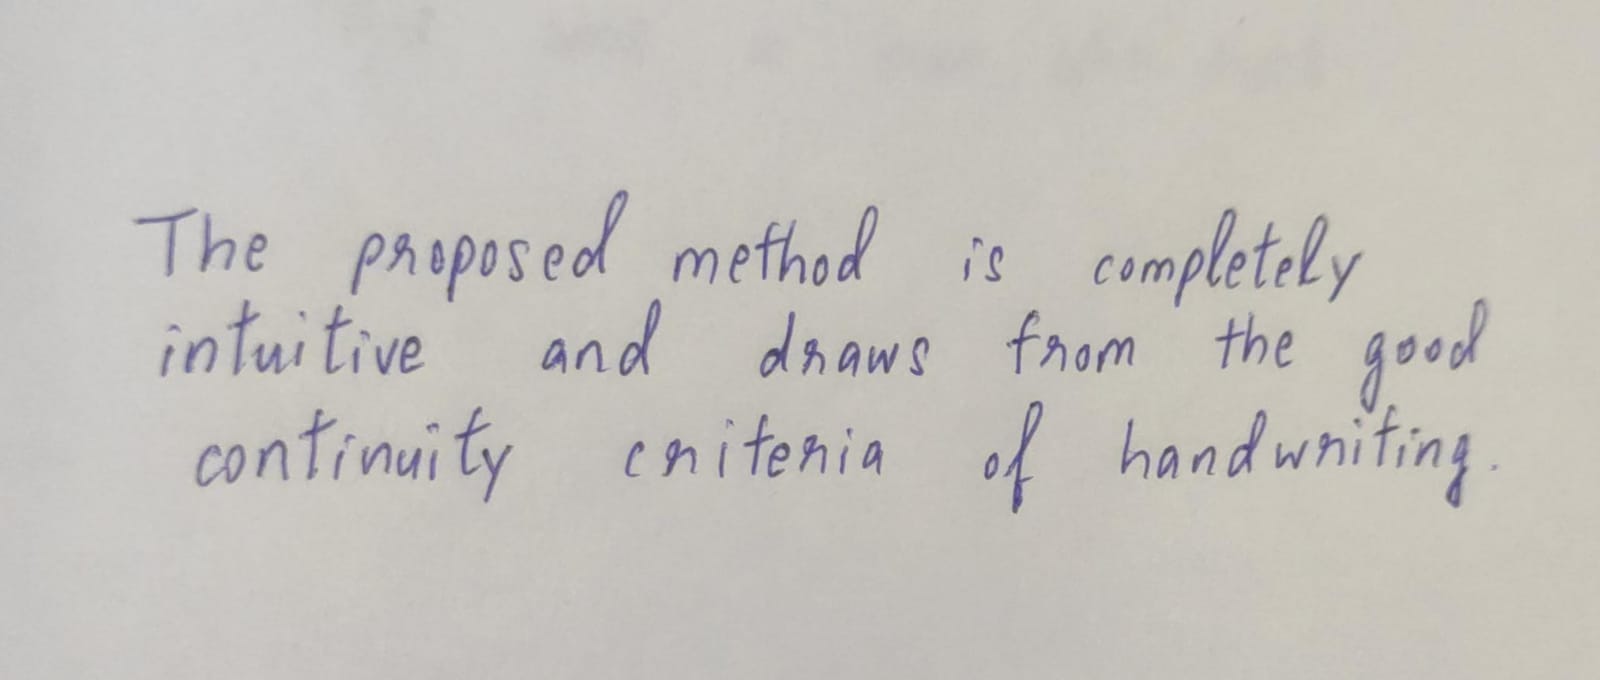 The proposed method is completely
intuitive and draws from the good
continuity criteria of handwriting.